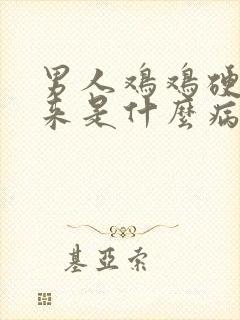 男人鸡鸡硬
来是什麼病
基亞索